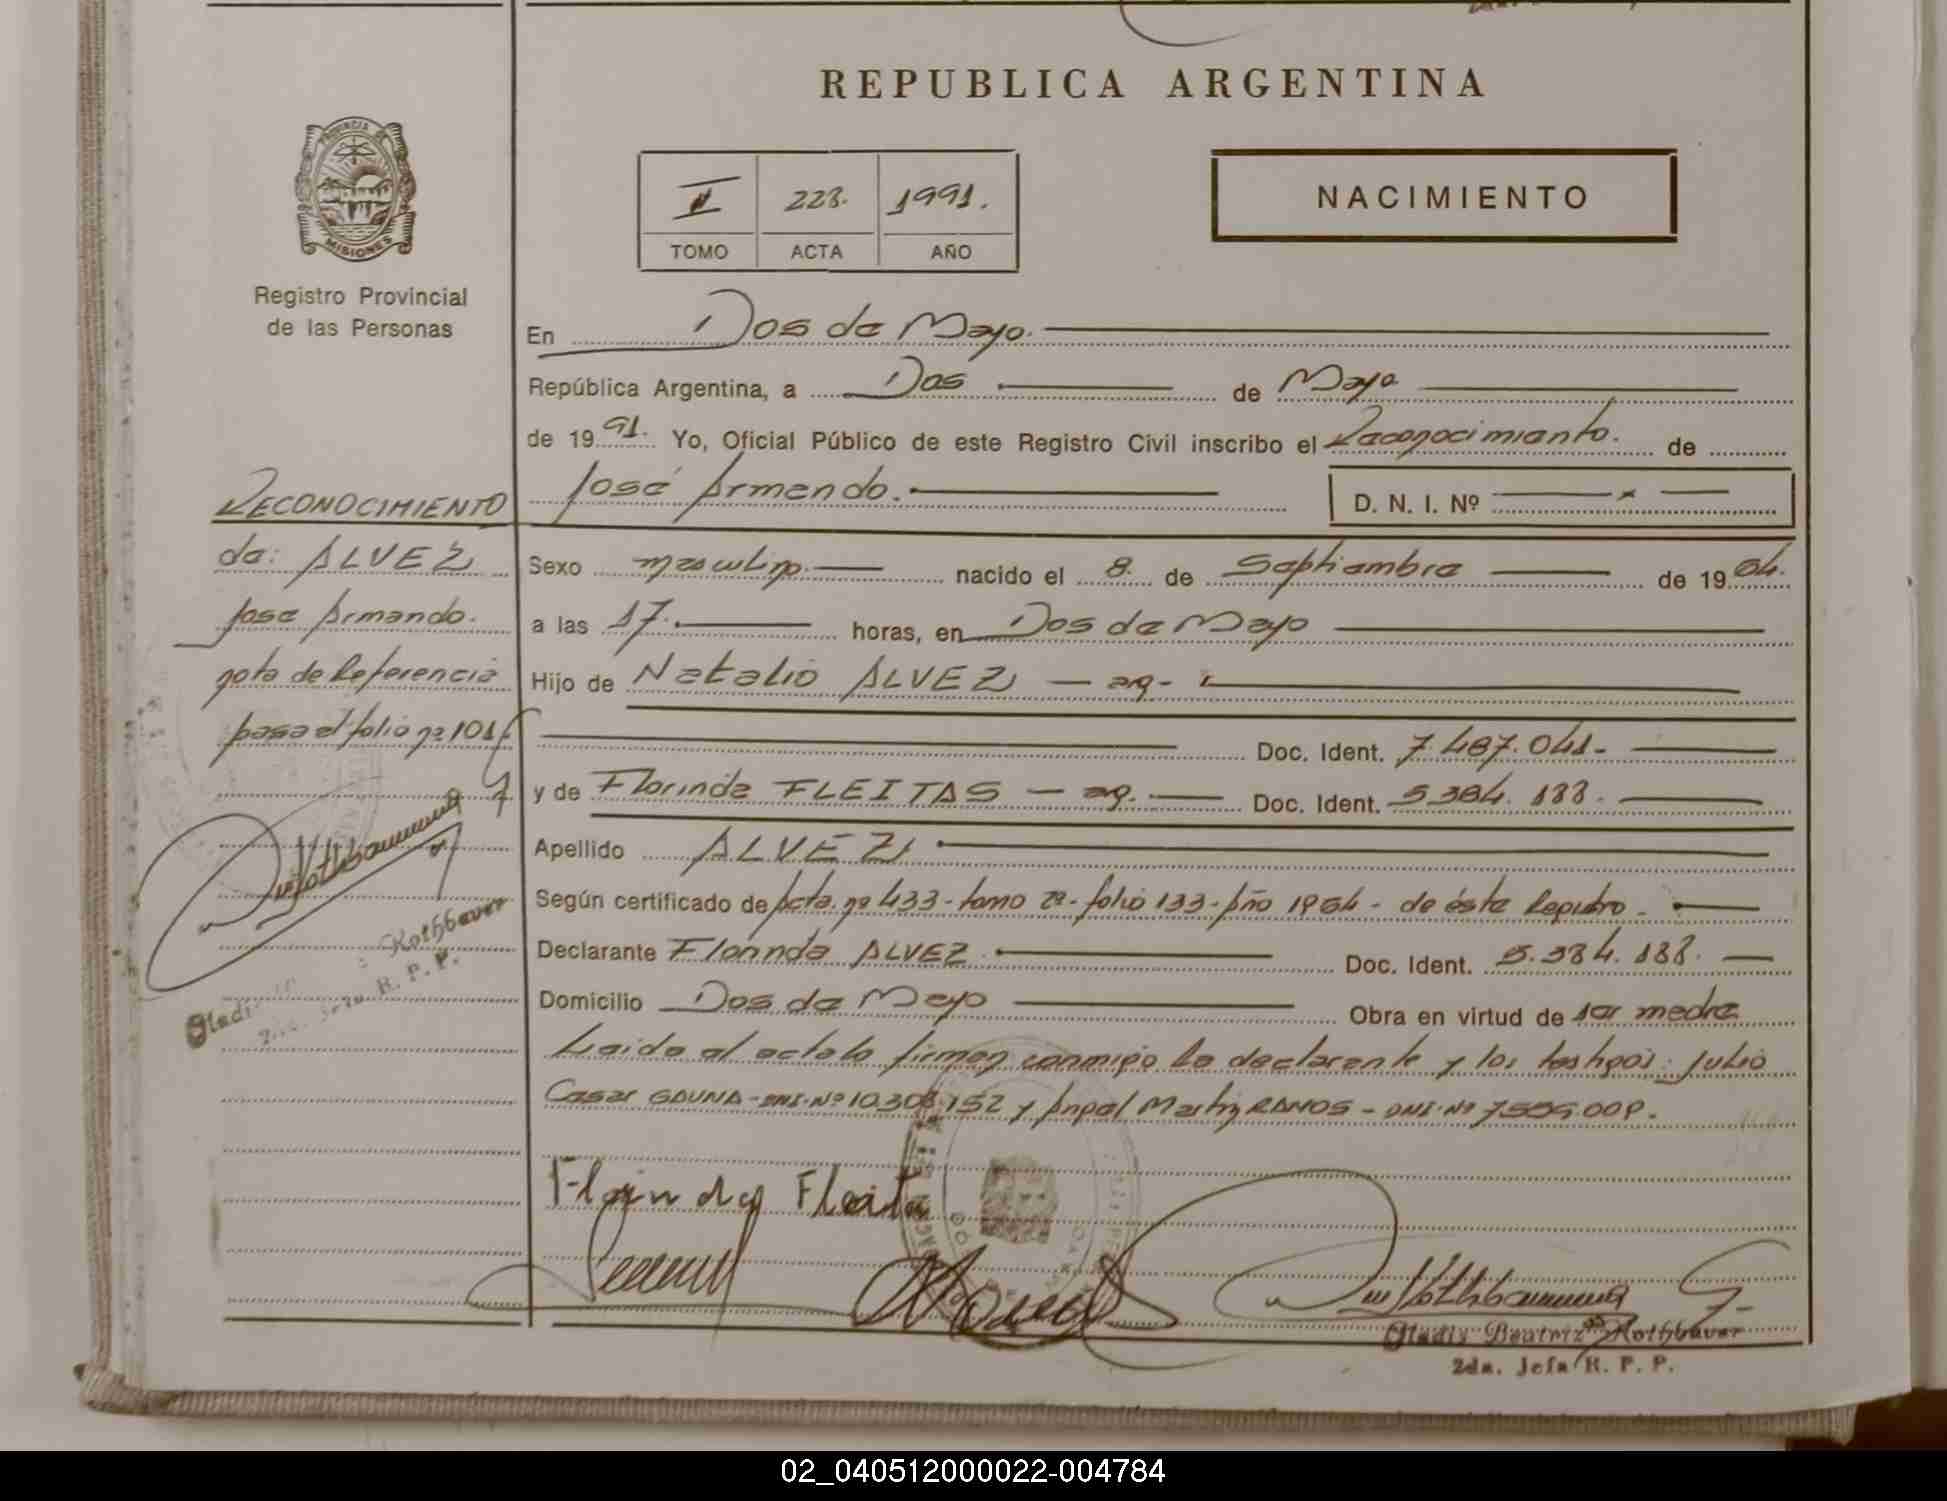 REPUBLICA ARGENTINA
PROVINCIA DE
MISIONES
Registro Provincial
de las Personas
II 223. 1991.
TOMO ACTA AÑO
NACIMIENTO
En Dos de Mayo.
República Argentina, a Dos de Mayo
de 1991. Yo, Oficial Público de este Registro Civil inscribo el Reconocimiento. de
José Armando. D. N. I. Nº
RECONOCIMIENTO
de: ALVEZ
Jose Armando.
nota de Referencia
pasa al folio nº 101
Rothbauer
Gladi
R. P. P.
Sexo masculino. nacido el 8. de Septiembre de 1964.
a las 17. horas, en Dos de Mayo
Hijo de Natalio ALVEZ - ar -
Doc. Ident. 7.487.041-
y de Florinda FLEITAS - ar. Doc. Ident. 5384.188.
Apellido ALVEZ
Según certificado de Acta. nº 433- tomo 2º- folio 133- Año 1964- de éste Registro.
Declarante Florinda ALVEZ Doc. Ident. 5.384.188.
Domicilio Dos de Mayo Obra en virtud de ser madre
Leida el acta la firman conmigo la declarante y los testigos: Julio
Cesar GAUNA-DNI-Nº 10.308.152 y Angel Martin RAMOS - DNI-Nº 7.555.009.
Florinda Fleita
Gladis Beatriz Rothbauer
2da. Jefa R. P. P.
02_040512000022-004784